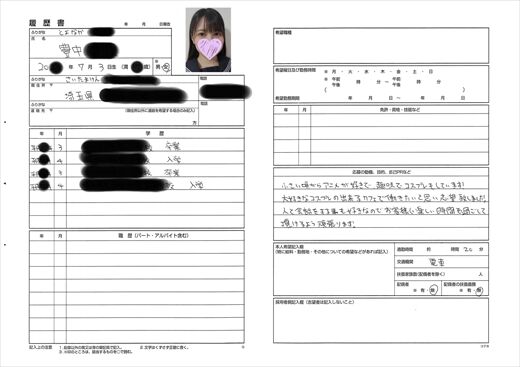 履歴書
年 月 日現在
ふりがな とよなか
氏名
豊中
20 年 7月 3日生 (満 歳) 男・女
ふりがな さいたまけん
電話
現住所 〒
埼玉県
ふりがな
電話
連絡先 〒 (現住所以外に連絡を希望する場合のみ記入)
方
年 月 学歴
3 卒業
4 入学
3 卒業
4 入学
年 月 職歴 (パート・アルバイト含む)
記入上の注意 1. 鉛筆以外の黒又は青の筆記具で記入。 2. 文字はくずさず正確に書く。
3. ※印のところは、該当するものを○で囲む。
希望職種
希望曜日及び勤務時間 ※ 月・火・水・木・金・土・日
午前 午後 時 分 ~ 午前 午後 時 分
希望勤務期間 年 月 日 ~ 年 月 日
年 月 免許・資格・技能など
志望の動機、目的、自己PRなど
小さい頃からアニメが好きで、趣味でコスプレをしています!
大好きなコスプレの出来るカフェで働きたいと思い志望致しました!
人と会話をする事も好きなのでお客様に楽しい時間を過ごして
頂けるよう頑張ります!
本人希望記入欄
(特に給料・勤務地・その他についての希望などがあれば記入)
通勤時間 約 時間 20分
交通機関 電車
扶養家族数(配偶者を除く) 人
配偶者 ※有・無
配偶者の扶養義務 ※有・無
採用者側記入欄 (志望者は記入しないこと)